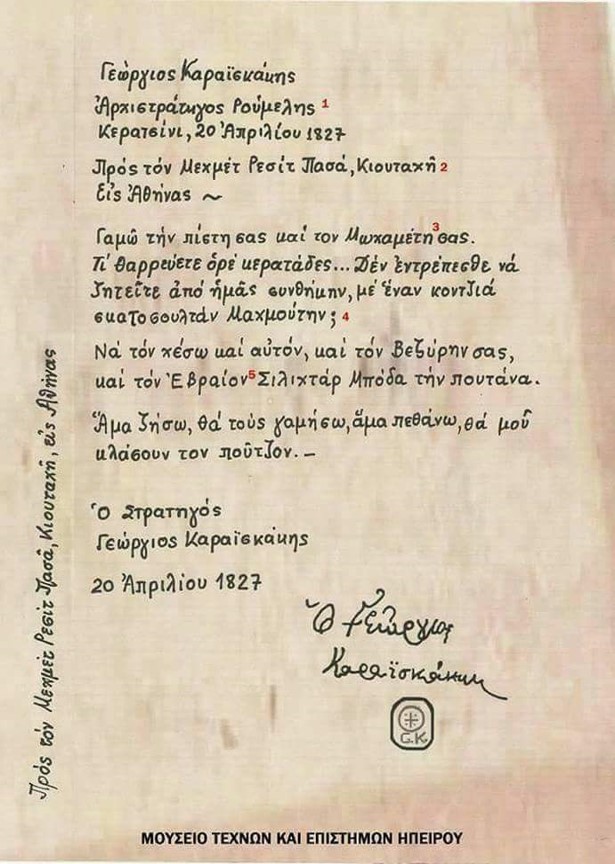 Γεώργιος Καραϊσκάκης
Ἀρχιστράτηγος Ρούμελης 1
Κερατσίνι, 20 Ἀπριλίου 1827
Πρός τόν Μεχμέτ Ρεσίτ Πασά, Κιουταχῆ 2
Εἰς Ἀθήνας ~
Γαμῶ τήν πίστη σας καί τον Μωχαμέτη 3 σας.
Τι' θαρρεύετε ὀρέ κερατάδες... Δέν ἐντρέπεσθε νά
ζητεῖτε ἀπό ἡμᾶς συνθήκην, μέ ἕναν κοντζιά
σκατοσουλτάν Μαχμούτην; 4
Νά τόν χέσω καί αὐτόν, καί τόν Βεζύρην σας,
καί τόν Ἑβραίον 5 Σιλιχτάρ Μπόδα τήν πουτάνα.
Ἅμα ζήσω, θά τούς γαμήσω, ἅμα πεθάνω, θά μοῦ
κλάσουν τον ποῦτζον. –
Ὁ Στρατηγός
Γεώργιος Καραϊσκάκης
20 Ἀπριλίου 1827
Ὁ Γεώργιος
Καραϊσκάκης
G.K.
Πρός τόν Μεχμέτ Ρεσίτ Πασᾶ, Κιουταχῆ, εἰς Ἀθήνας
ΜΟΥΣΕΙΟ ΤΕΧΝΩΝ ΚΑΙ ΕΠΙΣΤΗΜΩΝ ΗΠΕΙΡΟΥ